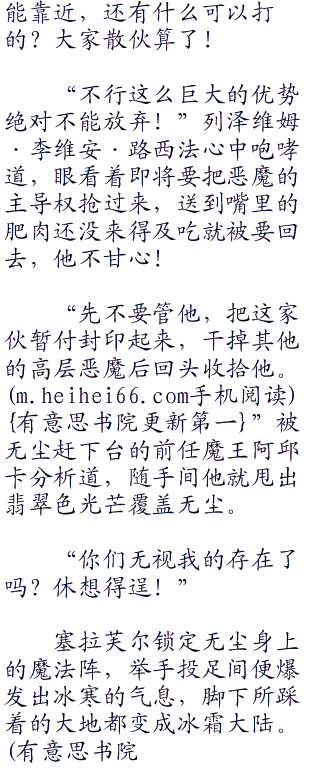 能靠近，还有什么可以打
的？大家散伙算了！
“不行这么巨大的优势
绝对不能放弃！”列泽维姆
·李维安·路西法心中咆哮
道，眼看着即将要把恶魔的
主导权抢过来，送到嘴里的
肥肉还没来得及吃就被要回
去，他不甘心！
“先不要管他，把这家
伙暂付封印起来，干掉其他
的高层恶魔后回头收拾他。
(m.heihei66.com手机阅读)
{有意思书院更新第一}”被
无尘赶下台的前任魔王阿邱
卡分析道，随手间他就甩出
翡翠色光芒覆盖无尘。
“你们无视我的存在了
吗？休想得逞！”
塞拉芙尔锁定无尘身上
的魔法阵，举手投足间便爆
发出冰寒的气息，脚下所踩
着的大地都变成冰霜大陆。
(有意思书院